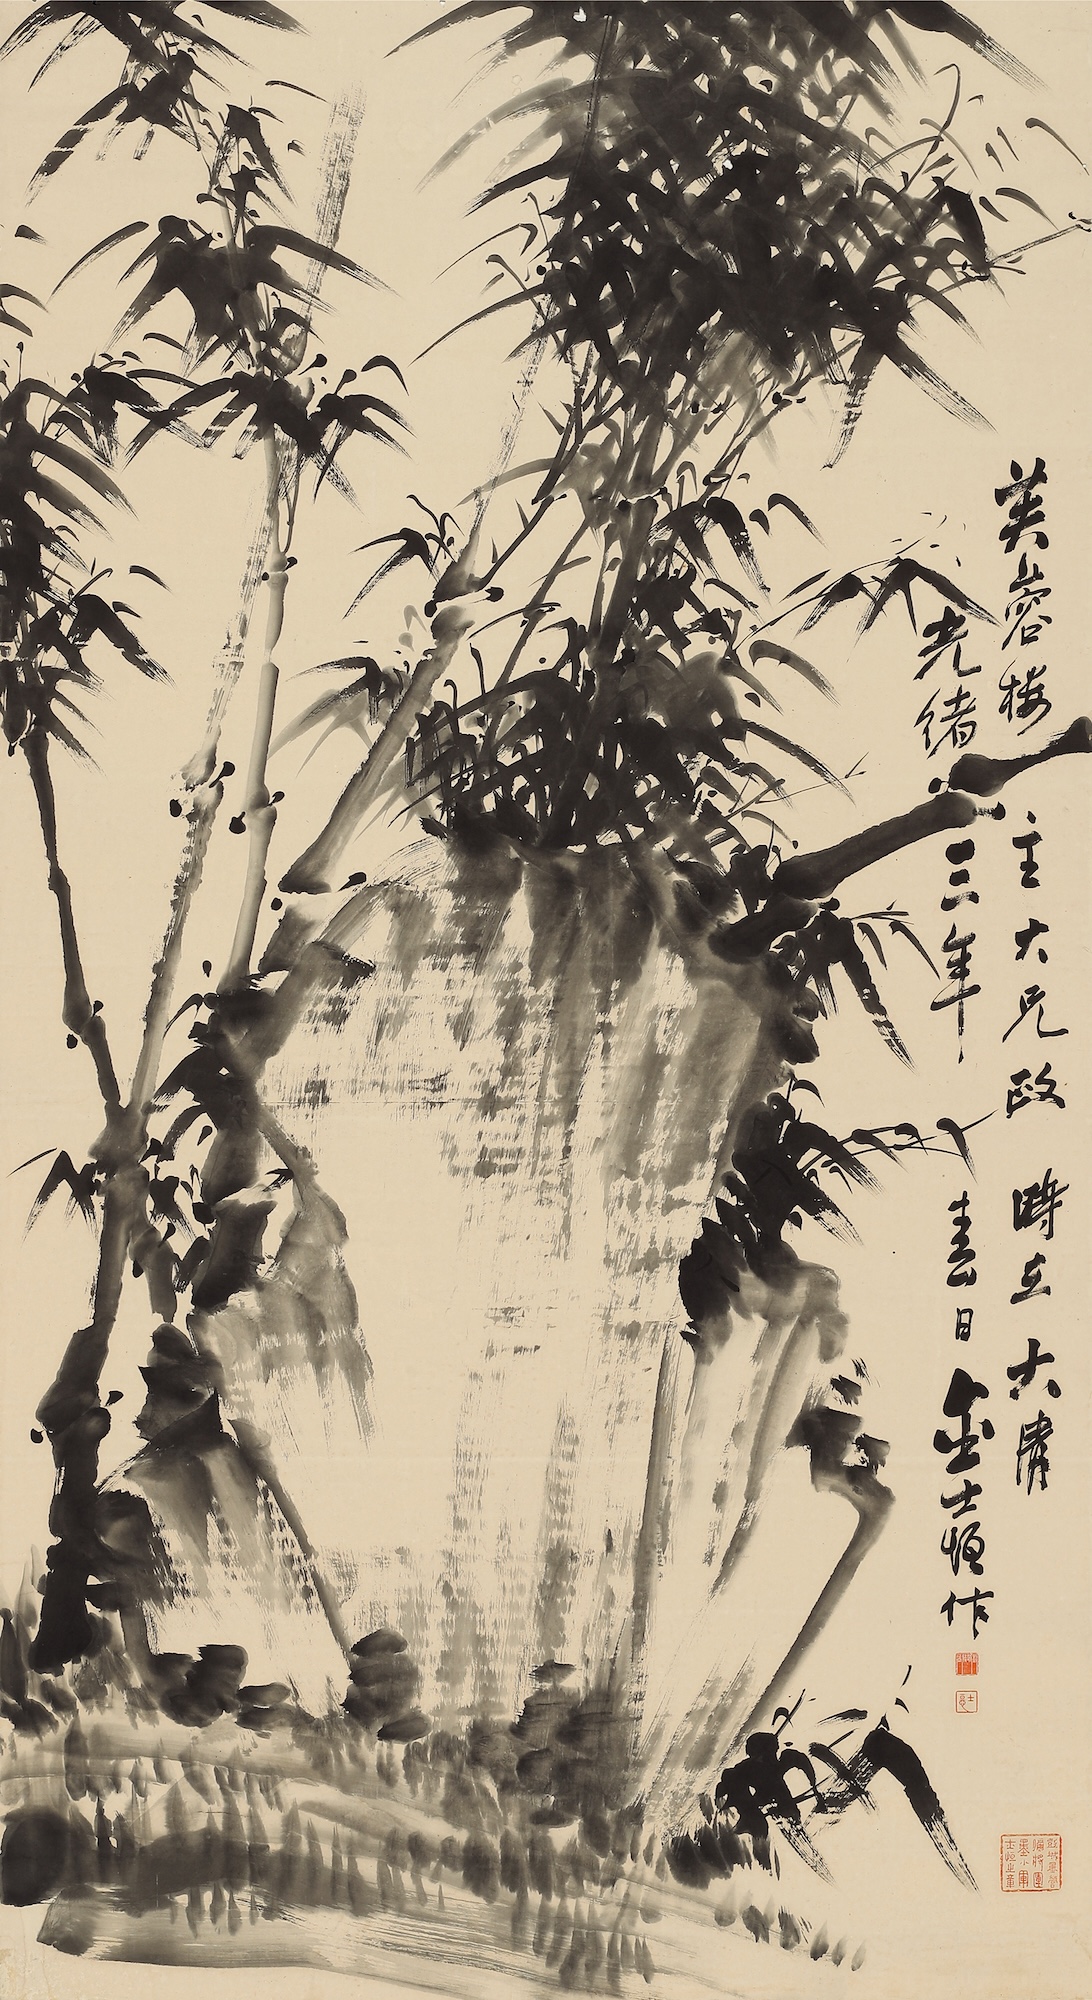 芙蓉楼主大兄政時在大清
光緒三年春日金士恒作